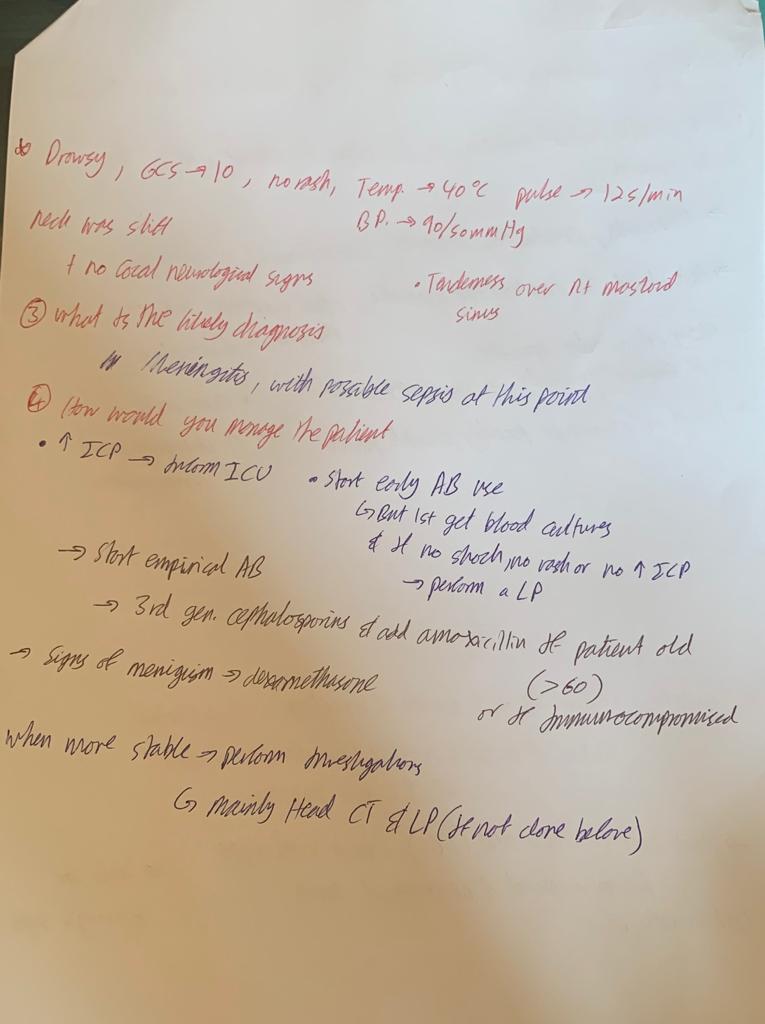 Drowsy, GCS → 10, no rash, Temp. → 40°C pulse → 125/min
neck was stiff
BP. → 90/50mmHg
+ no focal neurological signs
• Tenderness over Rt mastoid
sinus
③ What is the likely diagnosis
Meningitis, with possible sepsis at this point
④ How would you manage the patient
• ↑ ICP → Inform ICU
• Start early AB use
↳ But 1st get blood cultures
& If no shock, no rash or no ↑ ICP
→ perform a LP
→ Start empirical AB
→ 3rd gen. cephalosporins & add amoxicillin If patient old
(>60)
or If Immunocompromised
→ Signs of menigism → dexamethasone
When more stable → perform Investigations
↳ mainly Head CT & LP (If not done before)